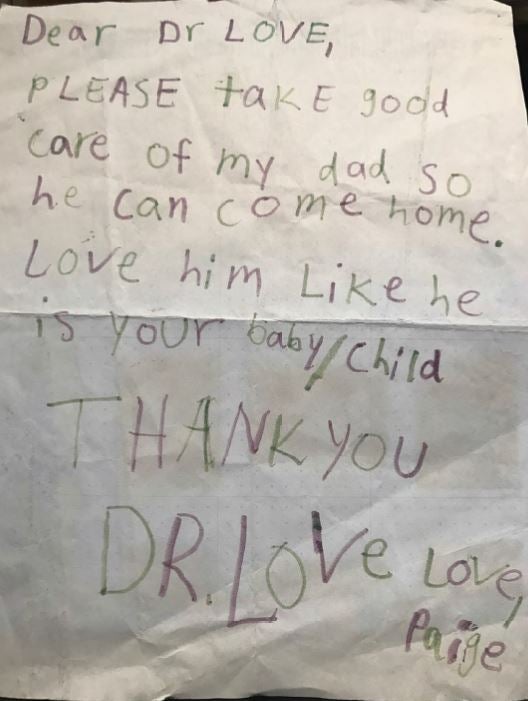 Dear Dr LOVE,
PLEASE takE good
care of my dad so
he can come home.
Love him Like he
is your baby/Child
THANK YOU
DR. LOVe Love,
Paige